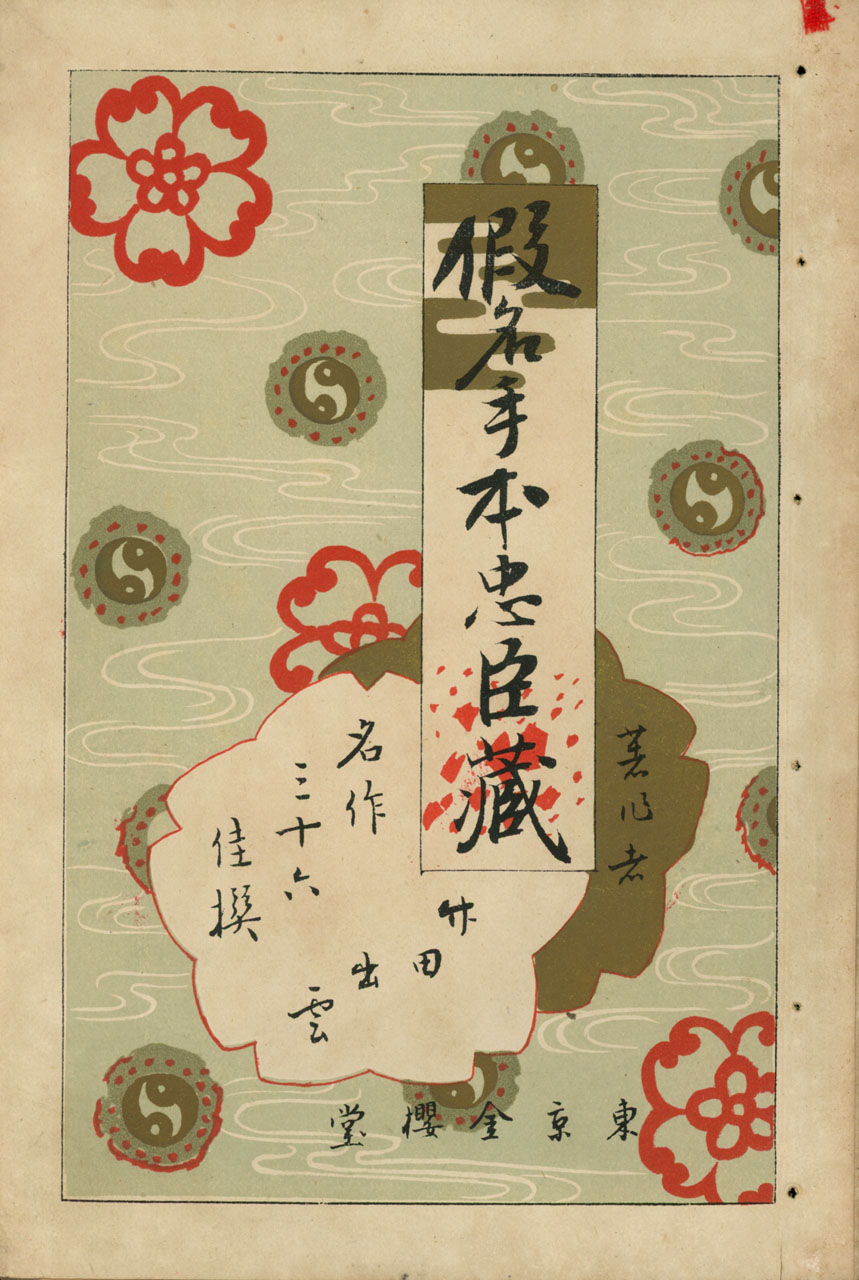 假名手本忠臣藏
著作者
竹田出雲
名作
三十六
佳撰
東京金櫻堂